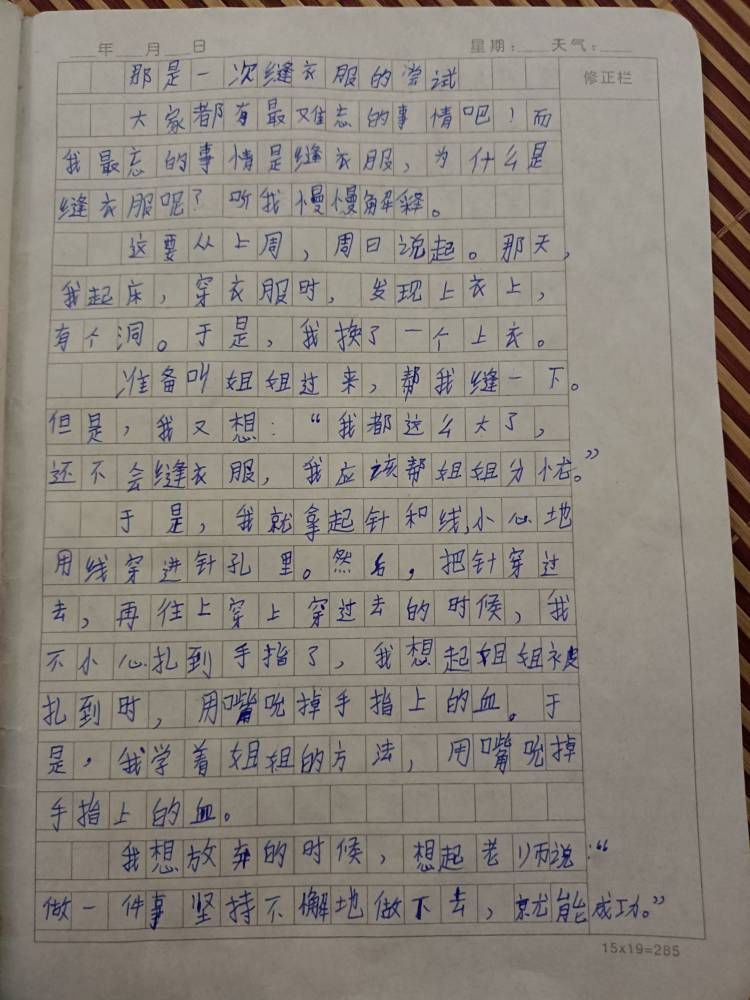 年 月 日 星期： 天气：
修正栏
那是一次缝衣服的尝试
大家都有最难忘的事情吧！而
我最忘的事情是缝衣服，为什么是
缝衣服呢？听我慢慢解释。
这要从上周，周日说起。那天，
我起床，穿衣服时，发现上衣上，
有个洞。于是，我换了一个上衣。
准备叫姐姐过来，帮我缝一下。
但是，我又想：“我都这么大了，
还不会缝衣服，我应该帮姐姐分忧。”
于是，我就拿起针和线，小心地
用线穿进针孔里。然后，把针穿过
去，再往上穿上穿过去的时候，我
不小心扎到手指了，我想起姐姐被
扎到时，用嘴吮掉手指上的血。于
是，我学着姐姐的方法，用嘴吮掉
手指上的血。
我想放弃的时候，想起老师说：“
做一件事坚持不懈地做下去，就能成功。”
15x19=285